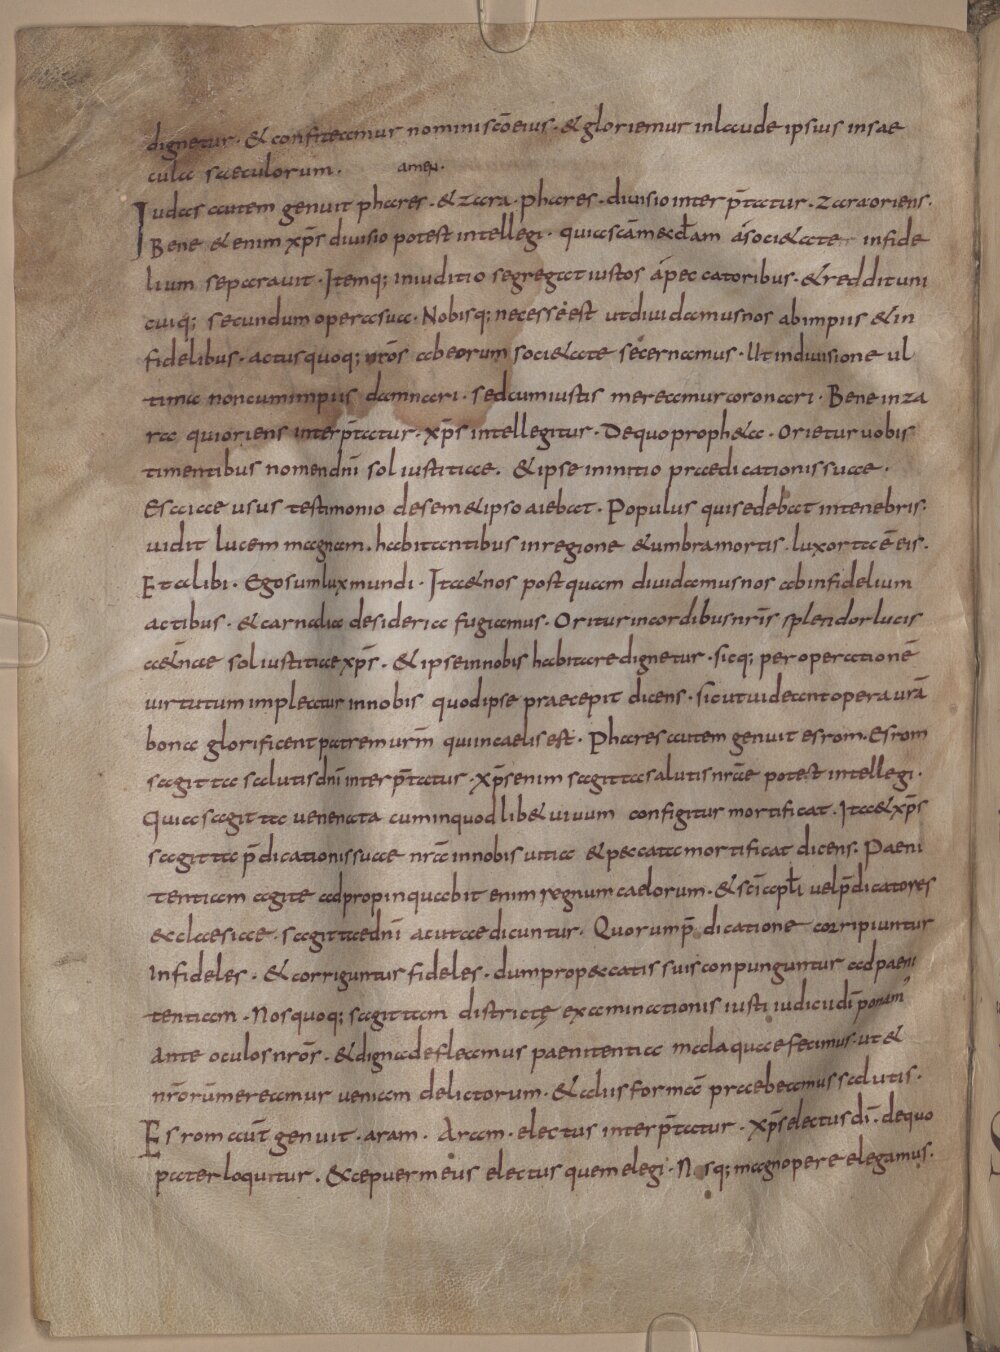 dignetur · & confiteamur nomini scō eius · & gloriemur inlaude ipsius insae
cula saeculorum · amen ·
Iudas autem genuit phares · & zara · phares · diuisio interp̄tatur · zara oriens ·
Bene & enim xp̄s diuisio potest intellegi · quia scām eccl̄am a soci&ate infide
lium separauit · Itemq; iniuditio segregat iustos a peccatoribus · & reddit uni
cuiq; secundum opera sua · Nobisq; necesse est utdiuidamus nos abimpiis & in
fidelibus · actus quoq; nr̄ōs abeorum soci&ate secernamus · Ut indiuisione ul
tima noncumimpiis damnari · sedcumiustis mereamur coronari · Bene inza
ra quioriens interp̄tatur · xp̄s intellegitur · Dequo proph&a · Orietur uobis
timentibus nomen dn̄i sol iustitiae · & ipse ininitio praedicationis suae ·
Esaiae usus testimonio desem&ipso aiebat · Populus quisedebat intenebris ·
uidit lucem magnam · habitantibus inregione & umbra mortis · lux orta ē eis ·
Et alibi · Ego sum lux mundi · Ita & nos postquam diuidamus nos abinfidelium
actibus · & carnalia desideria fugiamus · Oritur incordibus nr̄is splendor lucis
a&nae sol iustitiae xp̄s · & ipse innobis habitare dignetur · sicq; per operationē
uirtutum impleatur innobis quod ipse praecepit dicens · sicut uideant opera ur̄a
bona glorificent patrem ur̄m quiincaelis est · Phares autem genuit esrom · Esrom
sagitta salutis dn̄i interp̄tatur · xp̄s enim sagitta salutis nr̄ae potest intellegi ·
Quia sagitta uenenata cuminquodlib& uiuum configitur mortificat · Ita & xp̄s
sagitta p̄dicationis suae nr̄a innobis uitia & peccata mortificat dicens · Paeni
tentiam agite adpropinquabit enim regnum caelorum · & sc̄i ap̄li uel p̄dicatores
&clesiae · sagittae dn̄i acutae dicuntur · Quorum p̄dicatione corripiuntur
infideles · & corriguntur fideles · dum propeccatis suis conpunguntur ad paeni
tentiam · Nos quoq; sagittam districtę examinationis iusti iudicii dī ponam
ante oculos nr̄ōs · & digna defleamus paenitentia mala quae fecimus · ut &
nr̄ōrum mereamur ueniam delictorum · & aliis formā praebeamus salutis ·
Esrom aut̄ genuit · aram · Aram · electus interp̄tatur · xp̄s electus dī · dequo
pater loquitur · &ce puer meus electus quem elegi · Nosq; magnopere elegamus ·